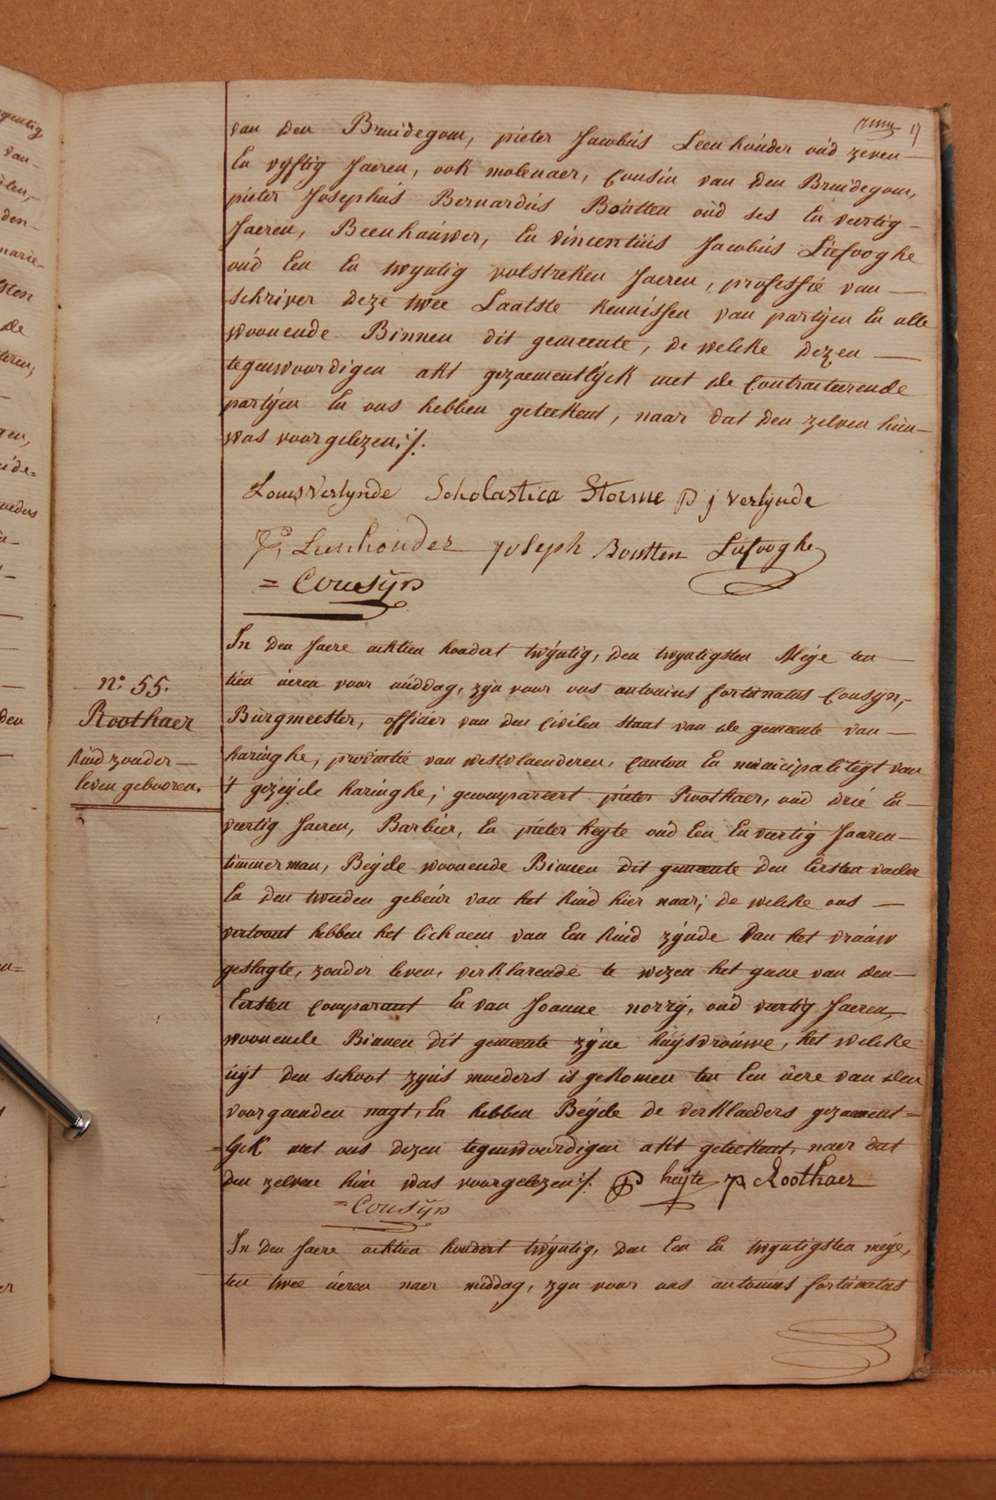 17
van den Bruidegom, pieter Jacobus Leenhouder oud zeven
En vyftig Jaeren, ook molenaer, Cousin van den Bruidegom,
pieter Josephus Bernardus Boutten oud ses En veertig
Jaeren, Beenhauwer, En vincentius Jacobus Liefooghe
oud Een En twyntig volstreken Jaeren, professie van
schriver deze twee Laatste kennissen van partyen En alle
woonende Binnen dit gemeente, de welcke dezen
tegenwoordigen akt gezaementlyck met de Contracteerende
partyen En ons hebben geteekent, naar dat den zelven hun
was voorgelezen./.
Louis Verlynde Scholastica Storme p j verlynde
P j Leenhouder Joseph Boutten Liefooghe
= Cousyn
In den Jaere achtien hondert twyntig, den twyntigsten Meye ten
tien ueren voor middag, zyn voor ons antonius fortunatus Cousyn,
Burgmeester, officier van den Civilen staat van de gemeente van
haringhe, provintie van westvlaenderen, canton En municipaliteyt van
't gezeyde haringhe; gecompareert pieter Roothaer, oud drie En
veertig Jaeren, Barbier, En pieter heyte oud Een En veertig Jaaren
timmerman, Beyde woonende Binnen dit gemeente den Eersten vader
En den tweeden gebeur van het kind hier naar; de welcke ons
vertoont hebben het lichaem van Een kind zynde van het vrouw
geslagte, zonder leven, verklarende te wezen het gune van den
Eersten comparant En van Joanne norry, oud veertig Jaeren,
woonende Binnen dit gemeente zyne huysvrouwe, het welcke
uyt den schoot zyns moeders is gekomen ten Een uere van den
voorgaenden nagt, En hebben Beyde de verklaeders gezaement=
=lyk met ons dezen tegenwoordigen akt geteekent, naer dat
den zelven hun was voorgelezen/. p heyte p Roothaer
= Cousyn
In den Jaere achtien hondert twyntig, den Een En twyntigsten meye,
ten twee ueren naer middag, zyn voor ons antonius fortunatus
n.° 55.
Roothaer
kind zonder
leven gebooren.